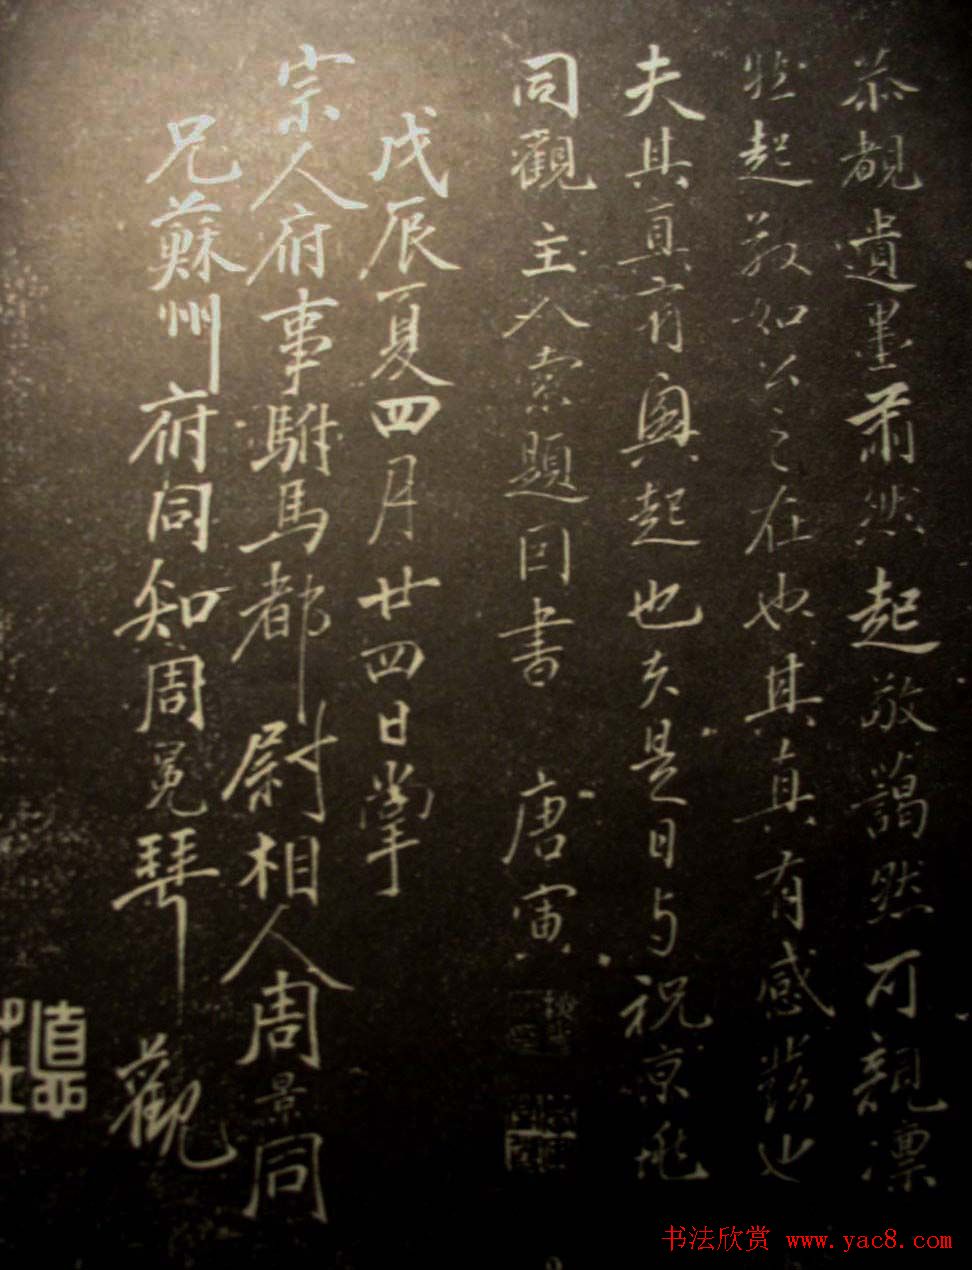 恭覩遺墨肅然起敬藹然可親凛
然起敬如公之在也其真有感發也
夫其真有興起也夫是日与祝京兆
同觀主人索題回書 唐寅
戊辰夏四月廿四日掌
宗人府事駙馬都尉相人周景同
兄蘇州府同知周冕琴觀
书法欣赏 www.yac8.com